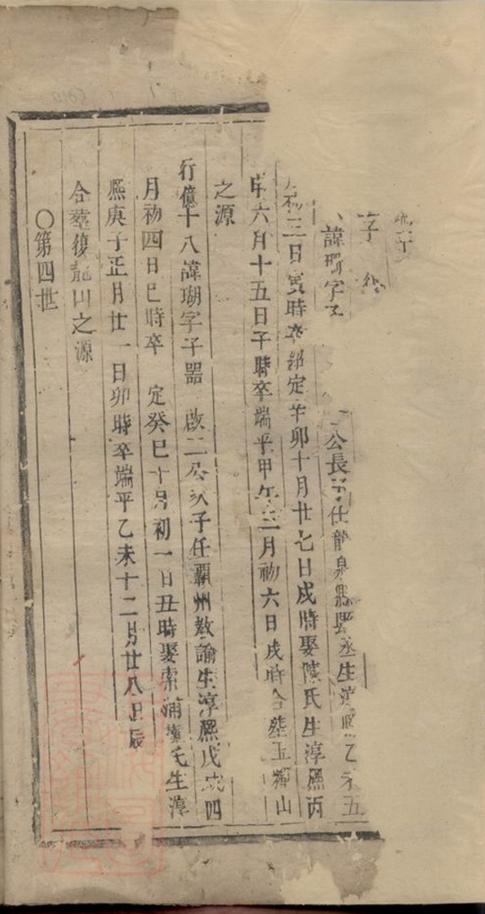 字
諱瑚字子公長子仕龍泉縣丞生淳熙乙未五
月初三日寅時卒紹定辛卯十月廿七日戌時娶陳氏生淳熙丙
申六月十五日子時卒端平甲午二月初六日戌時合塟玉山
之源
行億十八諱瑚字子器啟二公次子任覇州教諭生淳熈戊戌四
月初四日巳時卒定癸巳十月初一日丑時娶索浦黃氏生淳
熈庚子正月廿一日卯時卒端平乙未十二月廿八日辰
合塟後龍山之源
○第四世